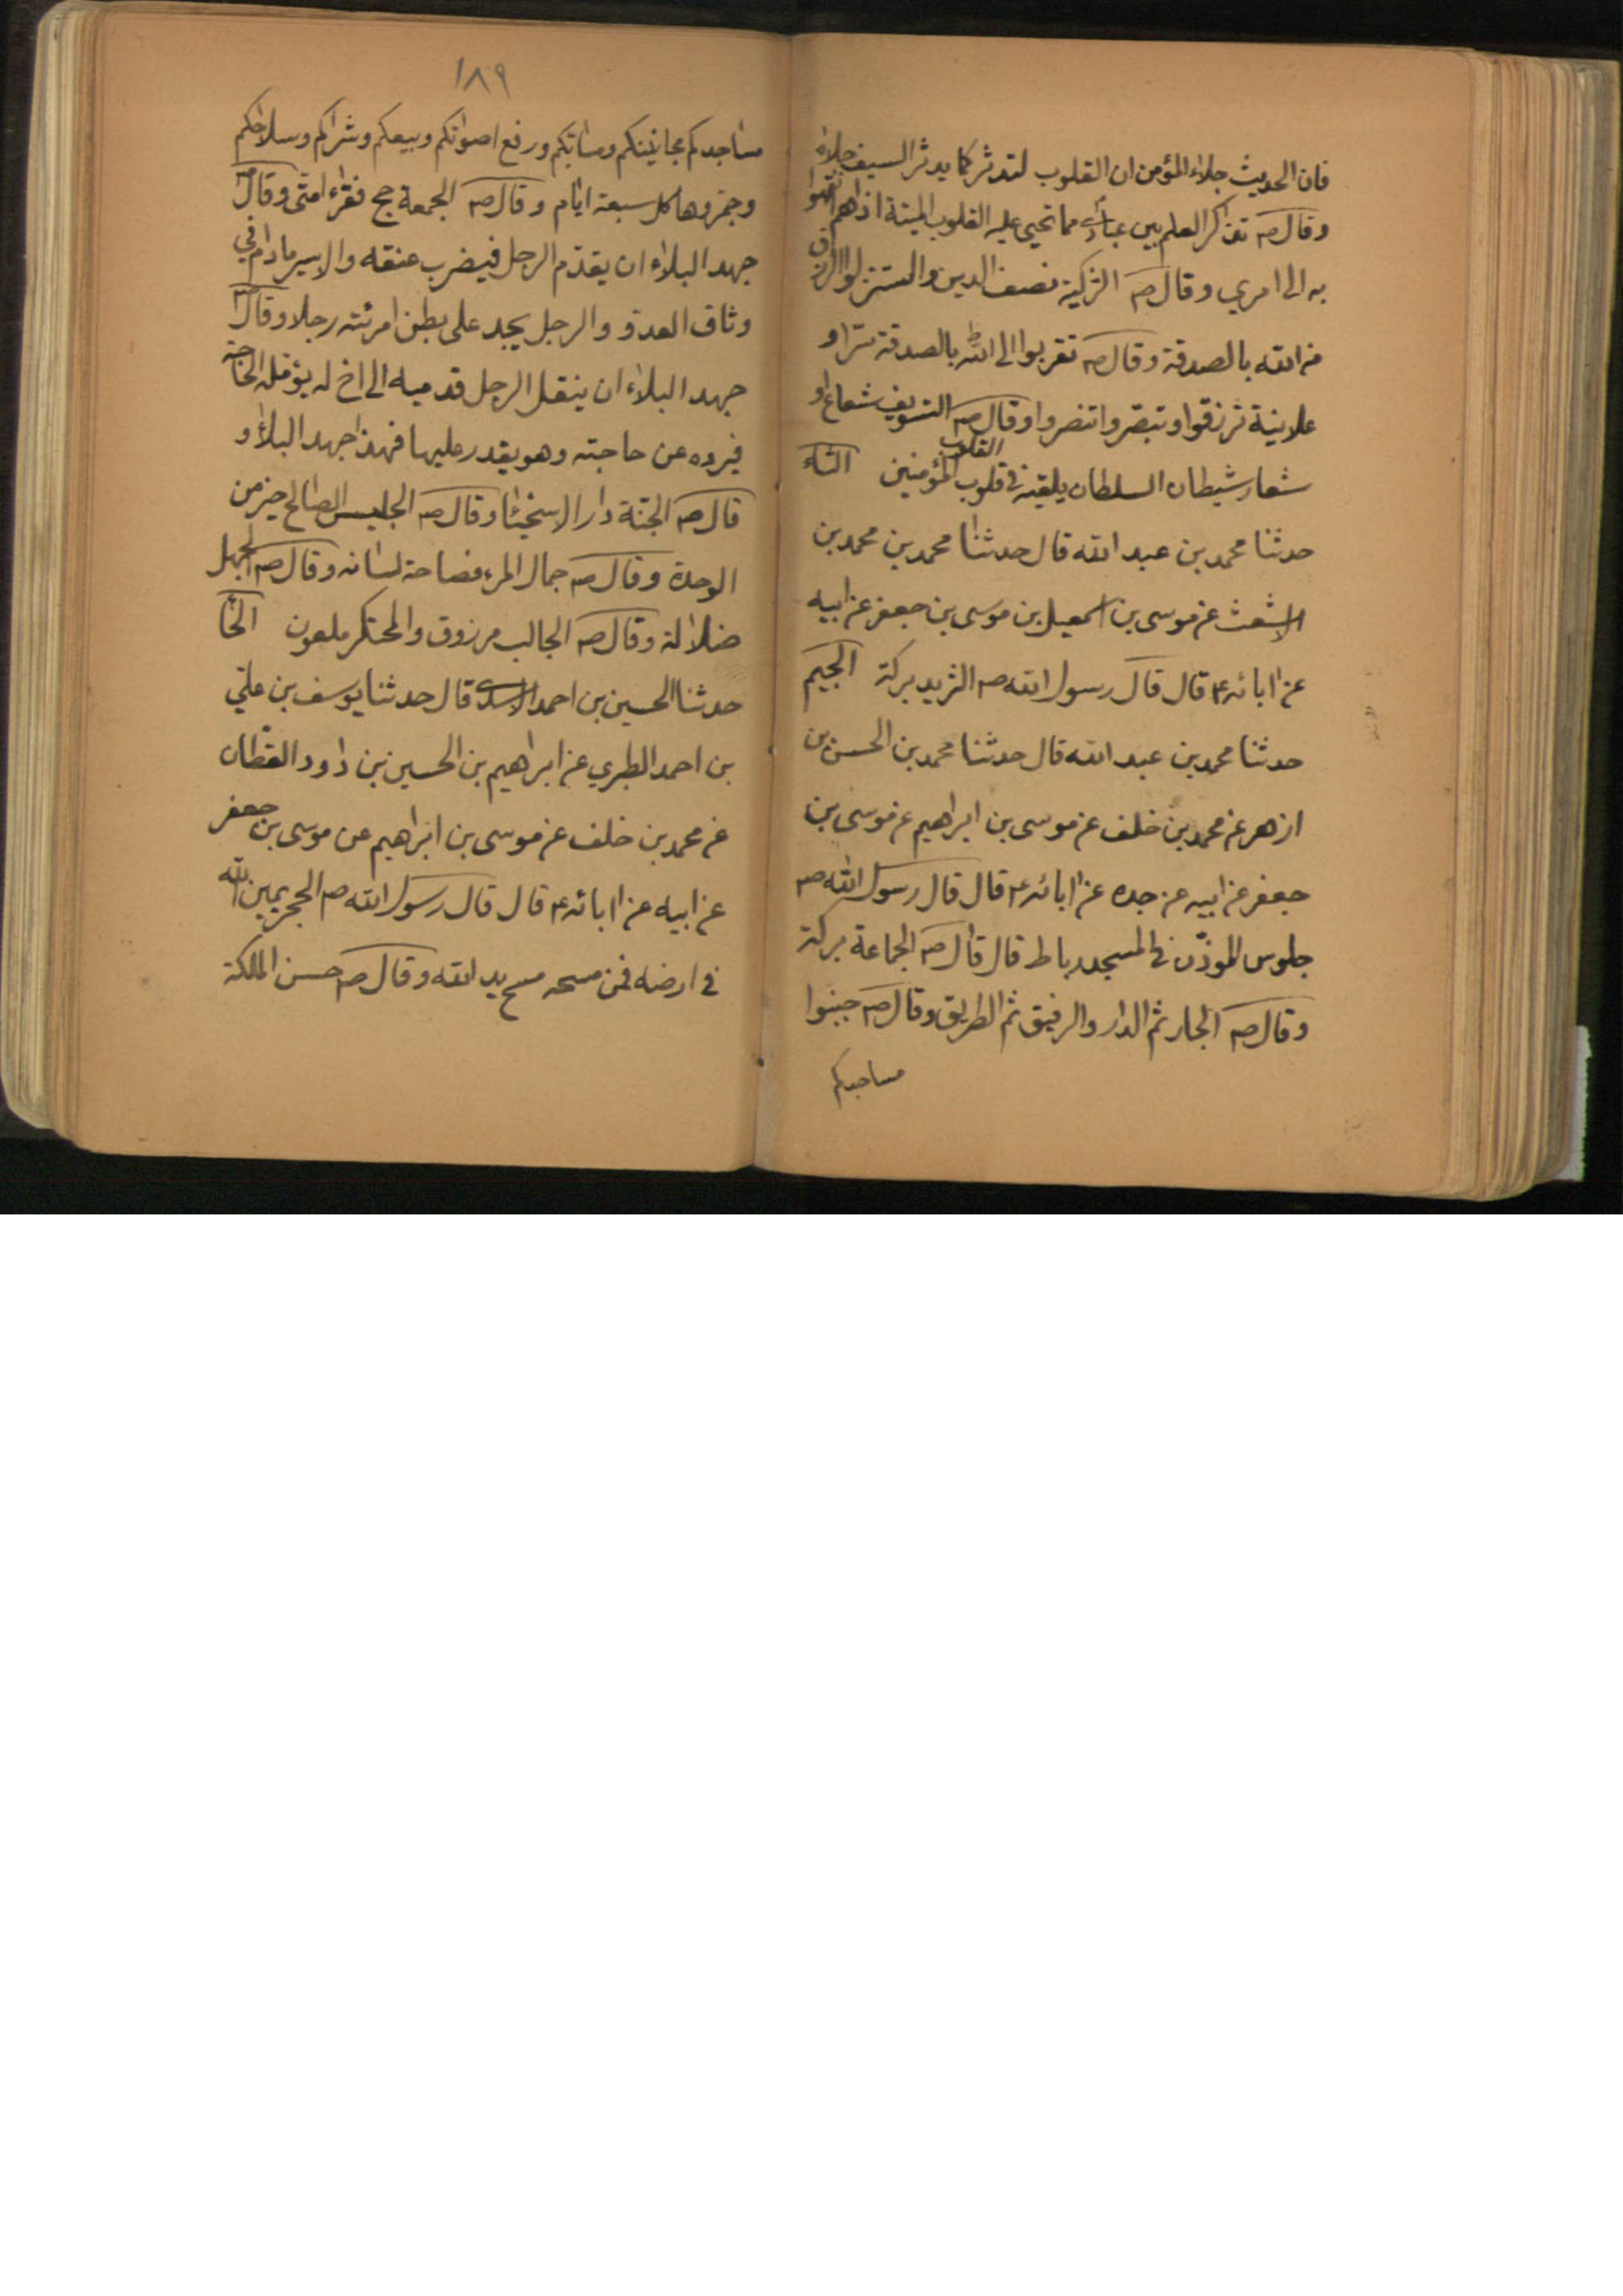 فان الحديث جلاء المؤمن ان القلوب لتدثر كما يدثر السيف جلاه
وقال ص تذاكر العلم بين عبادى مما تحيى عليه القلوب الميتة اذا هم انتهوا
به الى امري وقال ص التزكية نصف الدين واستنزلوا الرزق
من الله بالصدقة وقال ص تقربوا الى الله بالصدقة سرا و
علانية ترزقوا وتبصروا تنصروا وقال ص التسويف شعاع او
شعار شيطان السلطان يلقيه في قلوب المؤمنين الثاء
القلب
حدثنا محمد بن عبد الله قال حدثنا محمد بن محمد بن
الاشعث عن موسى بن اسمعيل بن موسى بن جعفر عن ابيه
عن ابائه ع قال قال رسول الله ص الثريد بركة الجيم
حدثنا محمد بن عبد الله قال حدثنا محمد بن الحسن بن
ازهر عن محمد بن خلف عن موسى بن ابراهيم عن موسى بن
جعفر عن ابيه عن جده عن ابائه ع قال قال رسول الله ص
جلوس الموذن في المسجد رباط قال قال ص الجماعة بركة
وقال ص الجار ثم الدار والرفيق ثم الطريق وقال ص جنبوا
مساجدكم
١٨٩
مساجدكم مجانينكم وصابتكم ورفع اصواتكم وبيعكم وشراكم وسلاحكم
وجمروها كل سبعة ايام وقال ص الجمعة حج فقراء امتى وقال ص
جهد البلاء ان يقدم الرجل فيضرب عنقه والاسير مادام في
وثاق العدو والرجل يجد على بطن امرئته رجلا وقال ص
جهد البلاء ان ينقل الرجل قدميه الى اخ له يؤمله الحاجة
فيرده عن حاجته وهو يقدر عليها فهذا جهد البلاء و
قال ص الجنة دار الاسخياء وقال ص الجليس الصالح خير من
الوحدة وقال ص جمال المرء فصاحة لسانه وقال ص الجهل
ضلالة وقال ص الجالب مرزوق والمحتكر ملعون الحا
حدثنا الحسين بن احمد الاسدى قال حدثنا يوسف بن علي
بن احمد الطبري عن ابراهيم بن الحسين بن داود القطان
عن محمد بن خلف عن موسى بن ابراهيم عن موسى بن جعفر
عن ابيه عن ابائه ع قال قال رسول الله ص الحجر يمين الله
في ارضه فمن مسحه مسح يد الله وقال ص حسن الملكة